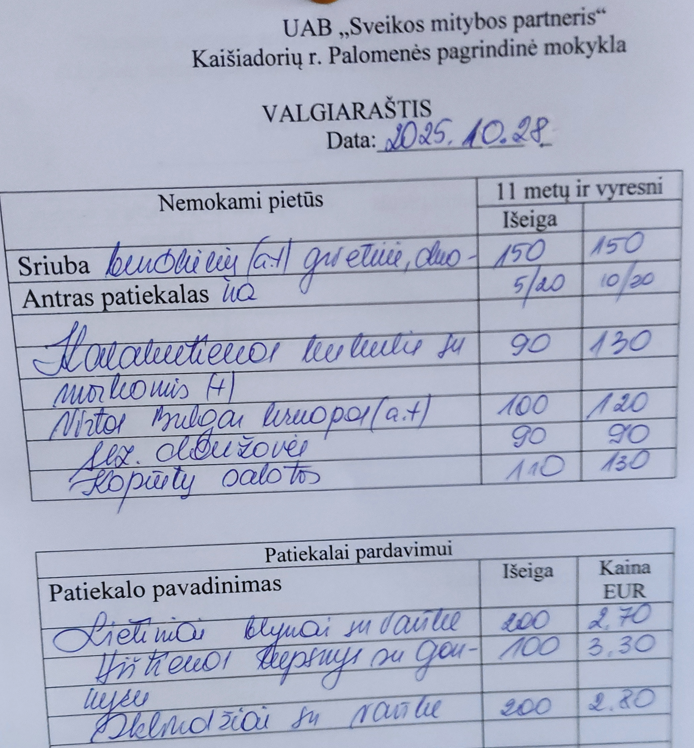 UAB „Sveikos mitybos partneris“
Kaišiadorių r. Palomenės pagrindinė mokykla
VALGIARAŠTIS
Data: 2025.10.28.
Nemokami pietūs 11 metų ir vyresni
Išeiga
Sriuba (a+) grietinė, duo- 150 150
Antras patiekalas na 5/20 10/20
Kalakutienos kukulis su 90 130
morkomis (+)
Virtos Bulgar kruopos (a.+) 100 120
sez. daržovės 90 90
Kopūstų salotos 110 130
Patiekalai pardavimui
Patiekalo pavadinimas Išeiga Kaina EUR
Lietiniai blynai su varške 200 2,70
Vištienos kepsnys su 100 3.30
su varške 200 2.80